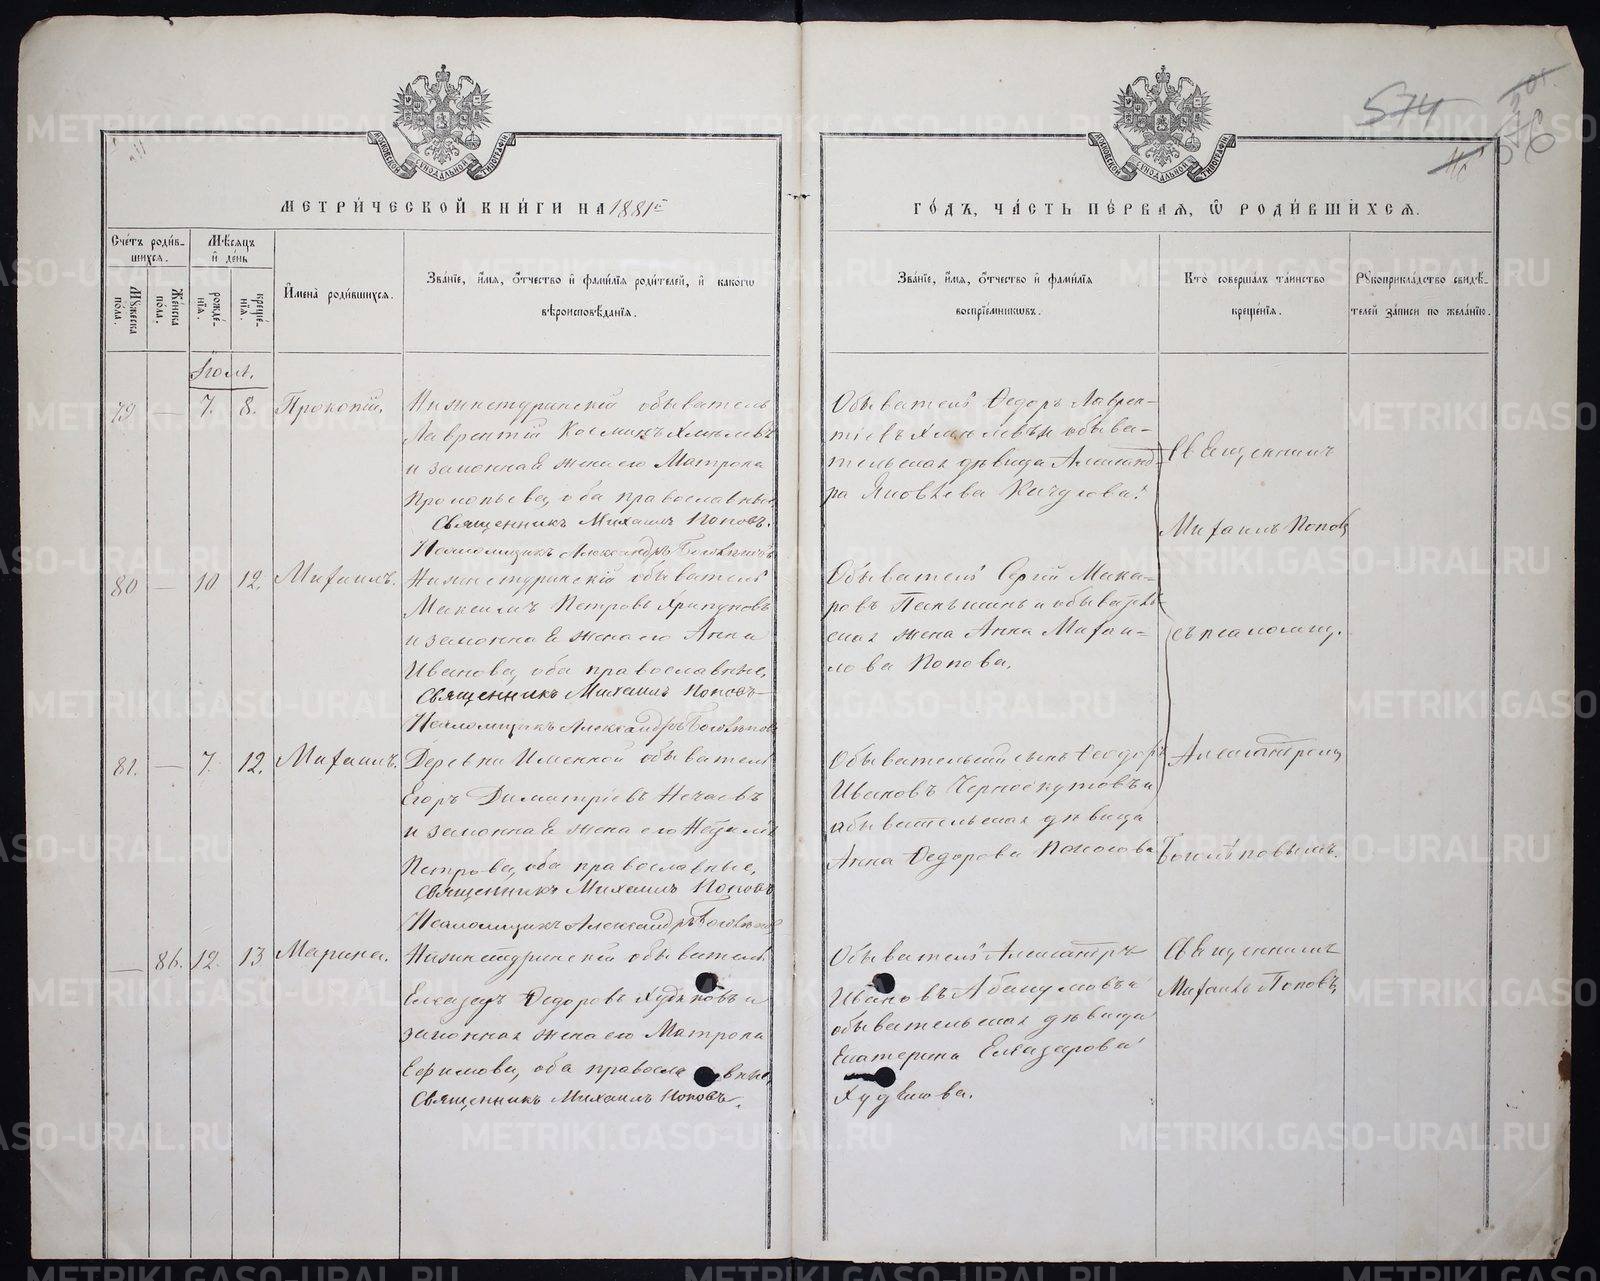 574
МОСКОВСКОЙ СѴНОДАЛЬНОЙ ТИПОГРАФІИ
МОСКОВСКОЙ СѴНОДАЛЬНОЙ ТИПОГРАФІИ
МЕТРИ́ЧЕСКОЙ КНИ́ГИ НА 1881й
ГО́ДЪ, ЧА́СТЬ ПЕ́РВАЯ, Ѡ РОДИ́ВШИХСЯ.
Сче́тъ роди́в-
шихся.
Мѣ́сяцъ
и́ де́нь
Мꙋжеска по́ла.
Же́нска по́ла.
рожде́-
нїя.
креще́-
нїя.
И҆мена̀ роди́вшихся.
Зва́нїе, и҆́мя, ѻ҆́тчество и҆ фами́лїя роди́телей, и҆ како́гѡ
вѣроисповѣ́данїя.
Зва́нїе, и҆́мя, ѻ҆́тчество и҆ фами́лїя
воспрїе́мникѡвъ.
Кто̀ соверша́лъ та́инство
креще́нїя.
Рꙋкоприкла́дство свидѣ́-
телей за́писи по жела́нїю.
Іюль.
79 — 7. 8. Прокопій,
Нижнетуринскій обыватель
Лаврентій Косминъ Хмѣлевъ
и законная жена его Матрона
Прокопьева, оба православные,
Священникъ Михаилъ Поповъ.
Псаломщикъ Александръ Боголѣповъ
Обыватель Ѳедоръ Лаврен-
тіевъ Хмѣлевъ и обыва-
тельская дѣвица Александ-
ра Яковлева Кичулова.
Священникъ
Михаилъ Поповъ
80 — 10 12. Михаилъ.
Нижнетуринскій обыватель
Максимъ Петровъ Хрипуновъ
и законная жена его Анна
Иванова, оба православные,
Священникъ Михаилъ Поповъ
Псаломщикъ Александръ Боголѣповъ
Обыватель Сергій Мака-
ровъ Паньшинъ и обыватель-
ская жена Анна Михаи-
лова Попова.
съ псаломщ.
81. — 7. 12. Михаилъ.
Деревни Именной обыватель
Егоръ Димитріевъ Нечаевъ
и законная жена его
Петрова, оба православные,
Священникъ Михаилъ Поповъ
Псаломщикъ Александръ Боголѣповъ
Обывательскій сынъ Ѳеодоръ
Ивановъ Черноскутовъ и
обывательская дѣвица
Анна Ѳедорова
Александромъ
Боголѣповымъ.
— 86. 12. 13 Марина.
Нижнетуринскій обыватель
Елеазаръ Ѳедоровъ Худяковъ и
законная жена его Матрона
Ефимова, оба православные,
Священникъ Михаилъ Поповъ.
Обыватель Александръ
Ивановъ Абакумовъ и
обывательская дѣвица
Екатерина Елеазарова
Худякова.
Священникъ
Михаилъ Поповъ
METRIKI.GASO-URAL.RU